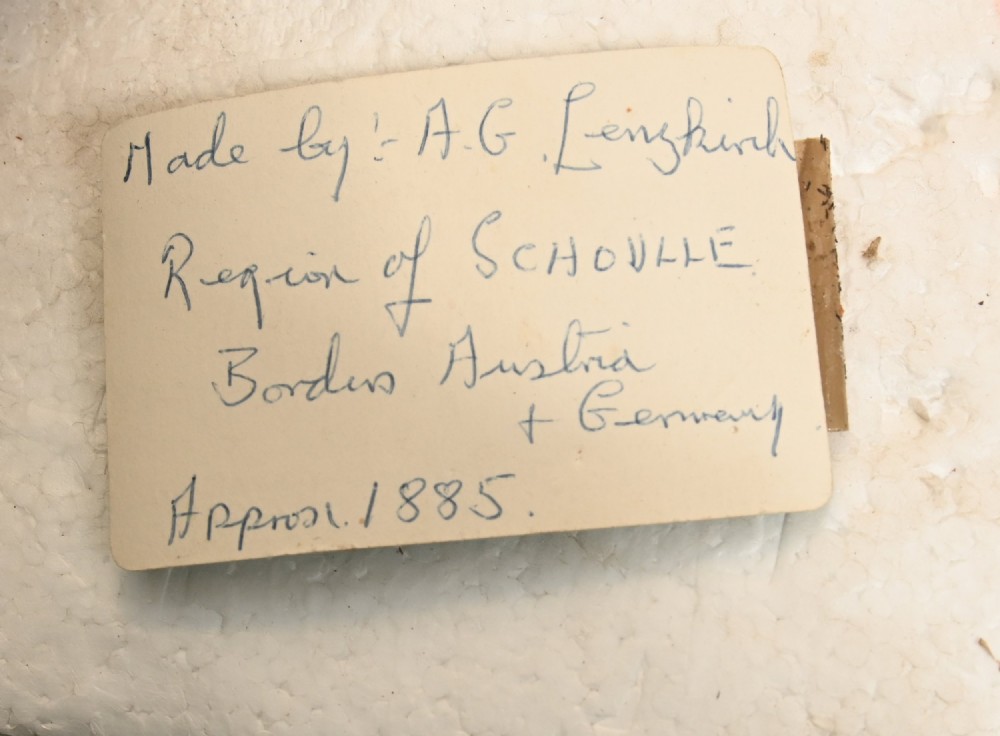 Made by:- A.G. Lenzkirch
Region of SCHOULLE
Borders Austria
+ Germany
Approx. 1885.